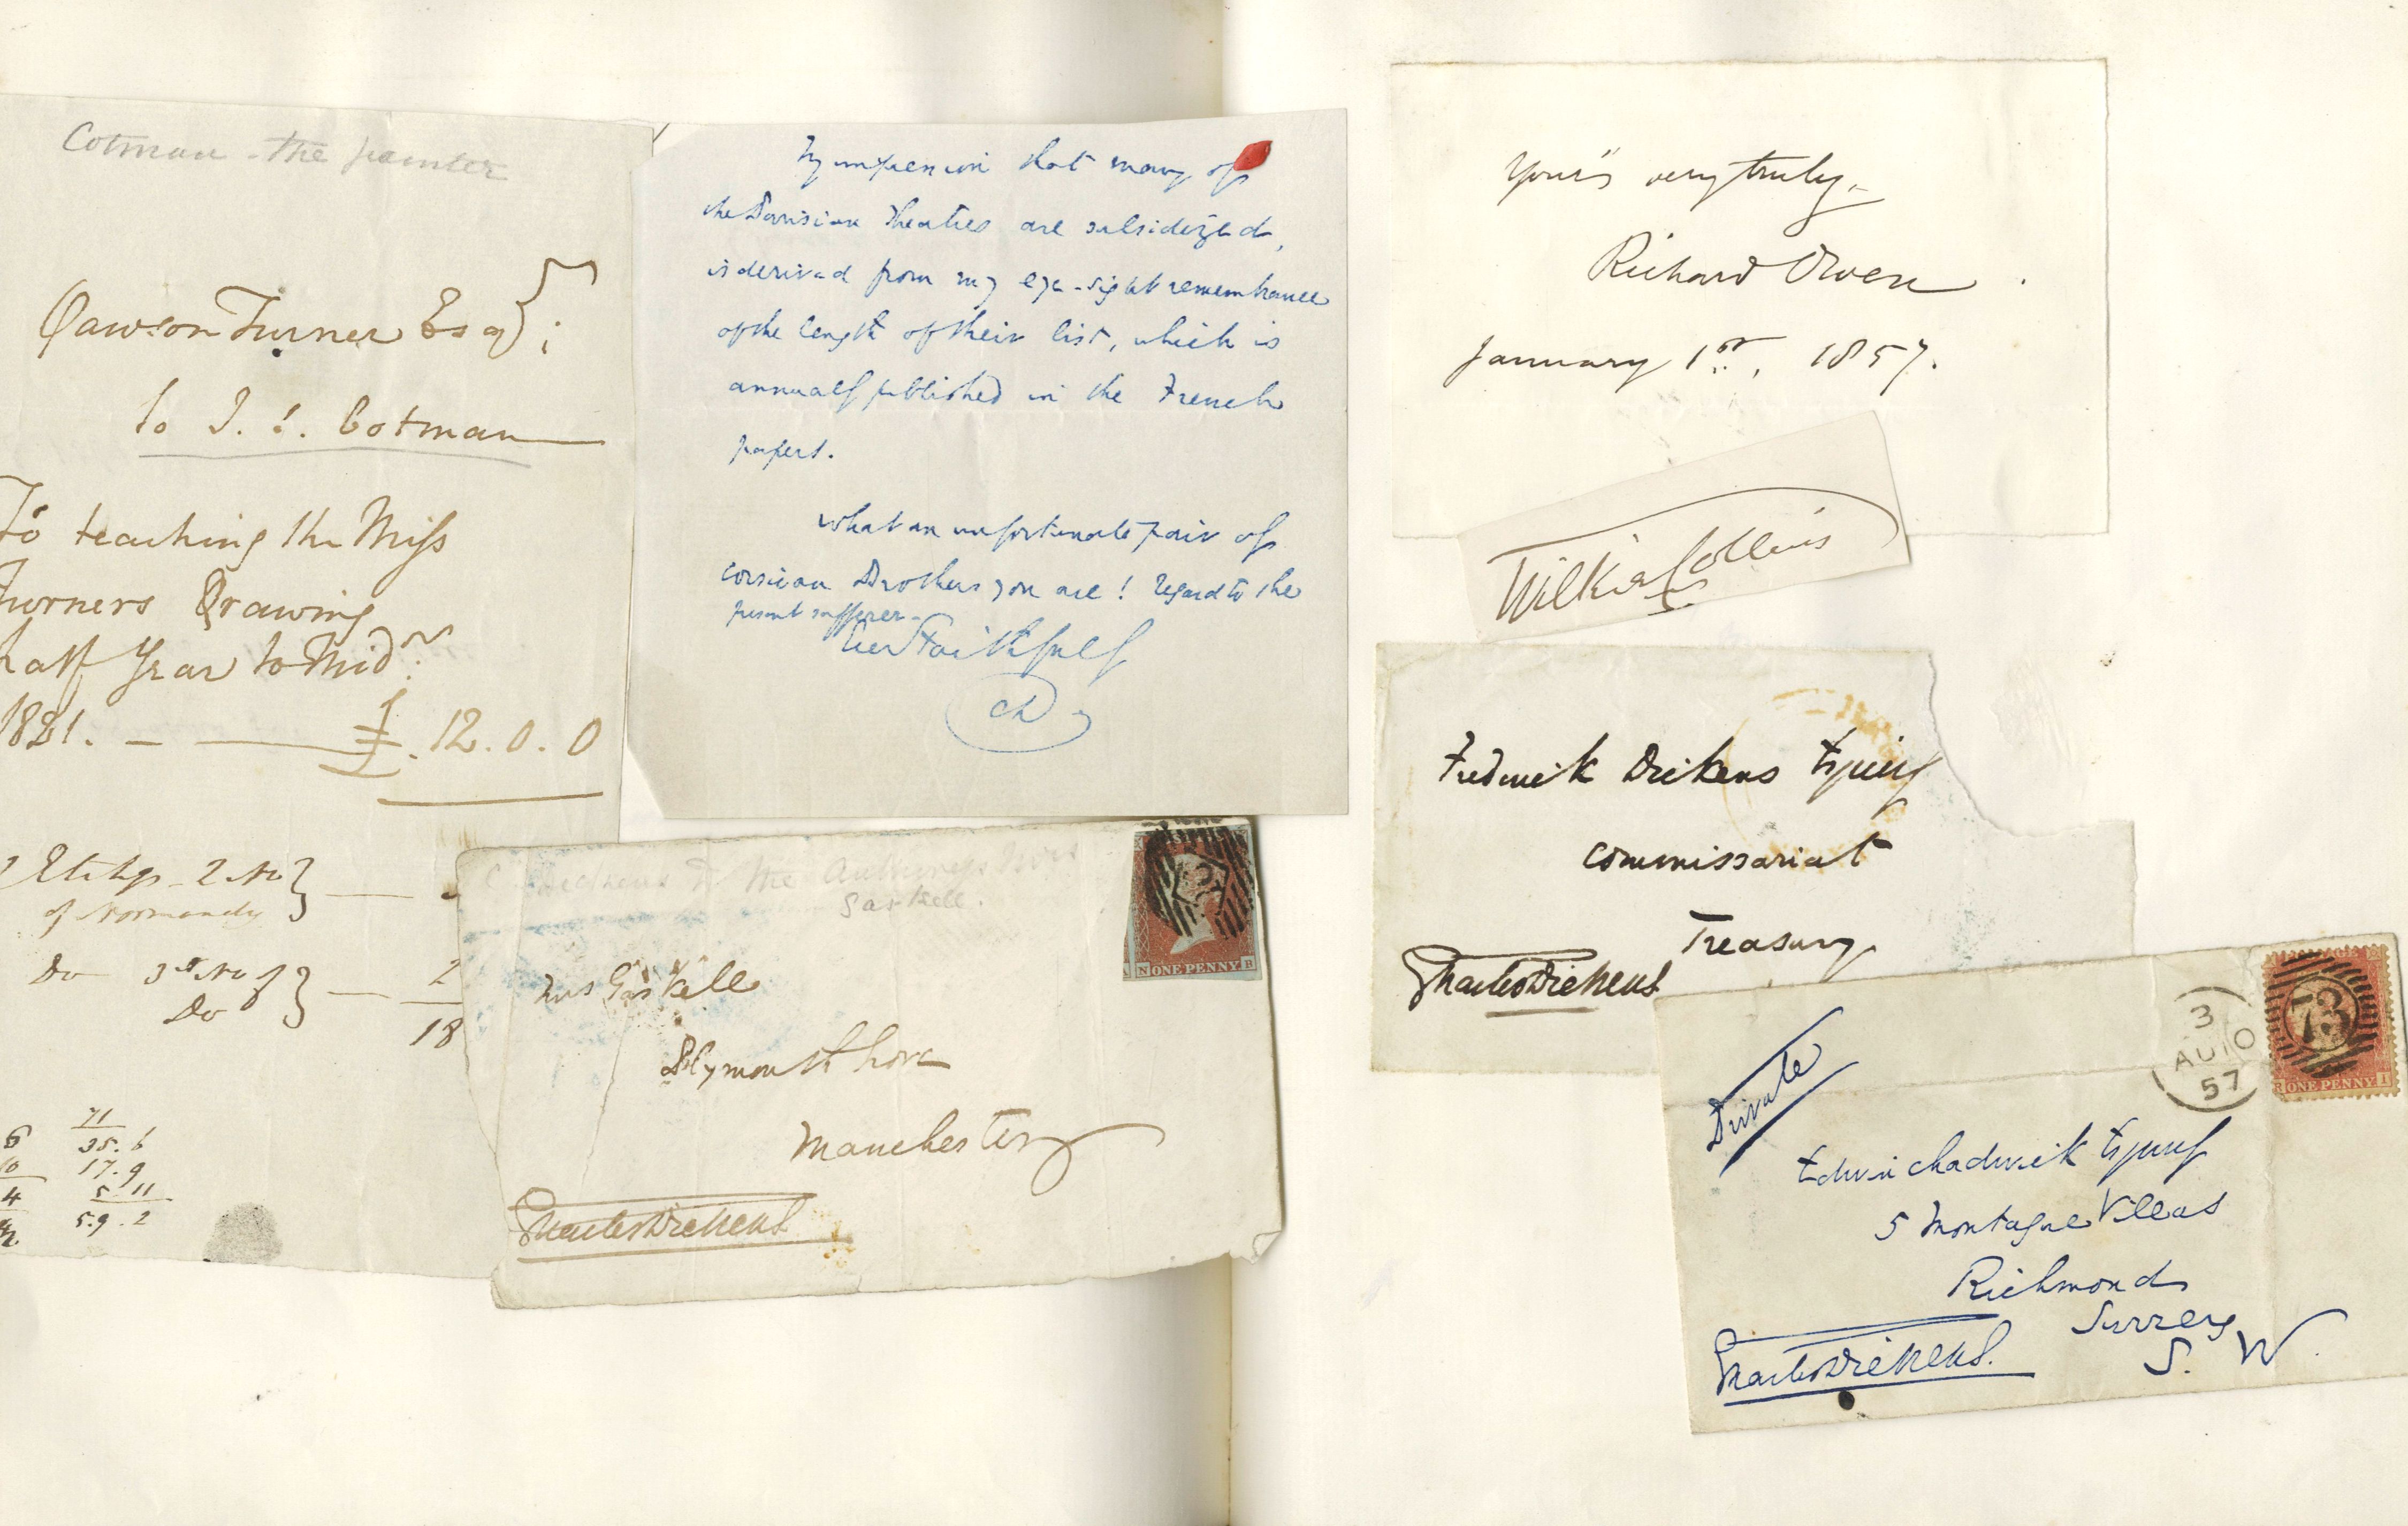 Cotman - the painter
Dawson Turner Esq;
to J. S. Cotman
To teaching the Miss
Turners Drawing
half Year to Mid
1821. — £. 12. 0. 0
Etchgs 2 No
of Normandy
Do 3rd No of
Do
2
18
71
35. 6
17. 9
5. 11
5. 9. 2
6
10
4
My impression that many of
the Parisian Theatres are subsidized,
is derived from my eye-sight remembrance
of the length of their list, which is
annually published in the French
papers.
What an unfortunate pair of
Corsican Brothers you are! Regard to the
present sufferer.
Ever Faithfully
CD
C. Dickens to the Authoress Mrs
Gaskell.
N ONE PENNY B
Mrs Gaskell
Plymouth Grove
Manchester
Charles Dickens
Yours very truly,
Richard Owen
January 1st, 1857.
Wilkie Collins
Frederick Dickens Esquire
Commissariat
Treasury
Charles Dickens
Private
3
AU 10
57
73
R ONE PENNY I
Edwin Chadwick Esquire
5 Montague Villas
Richmond
Surrey
S. W.
Charles Dickens.